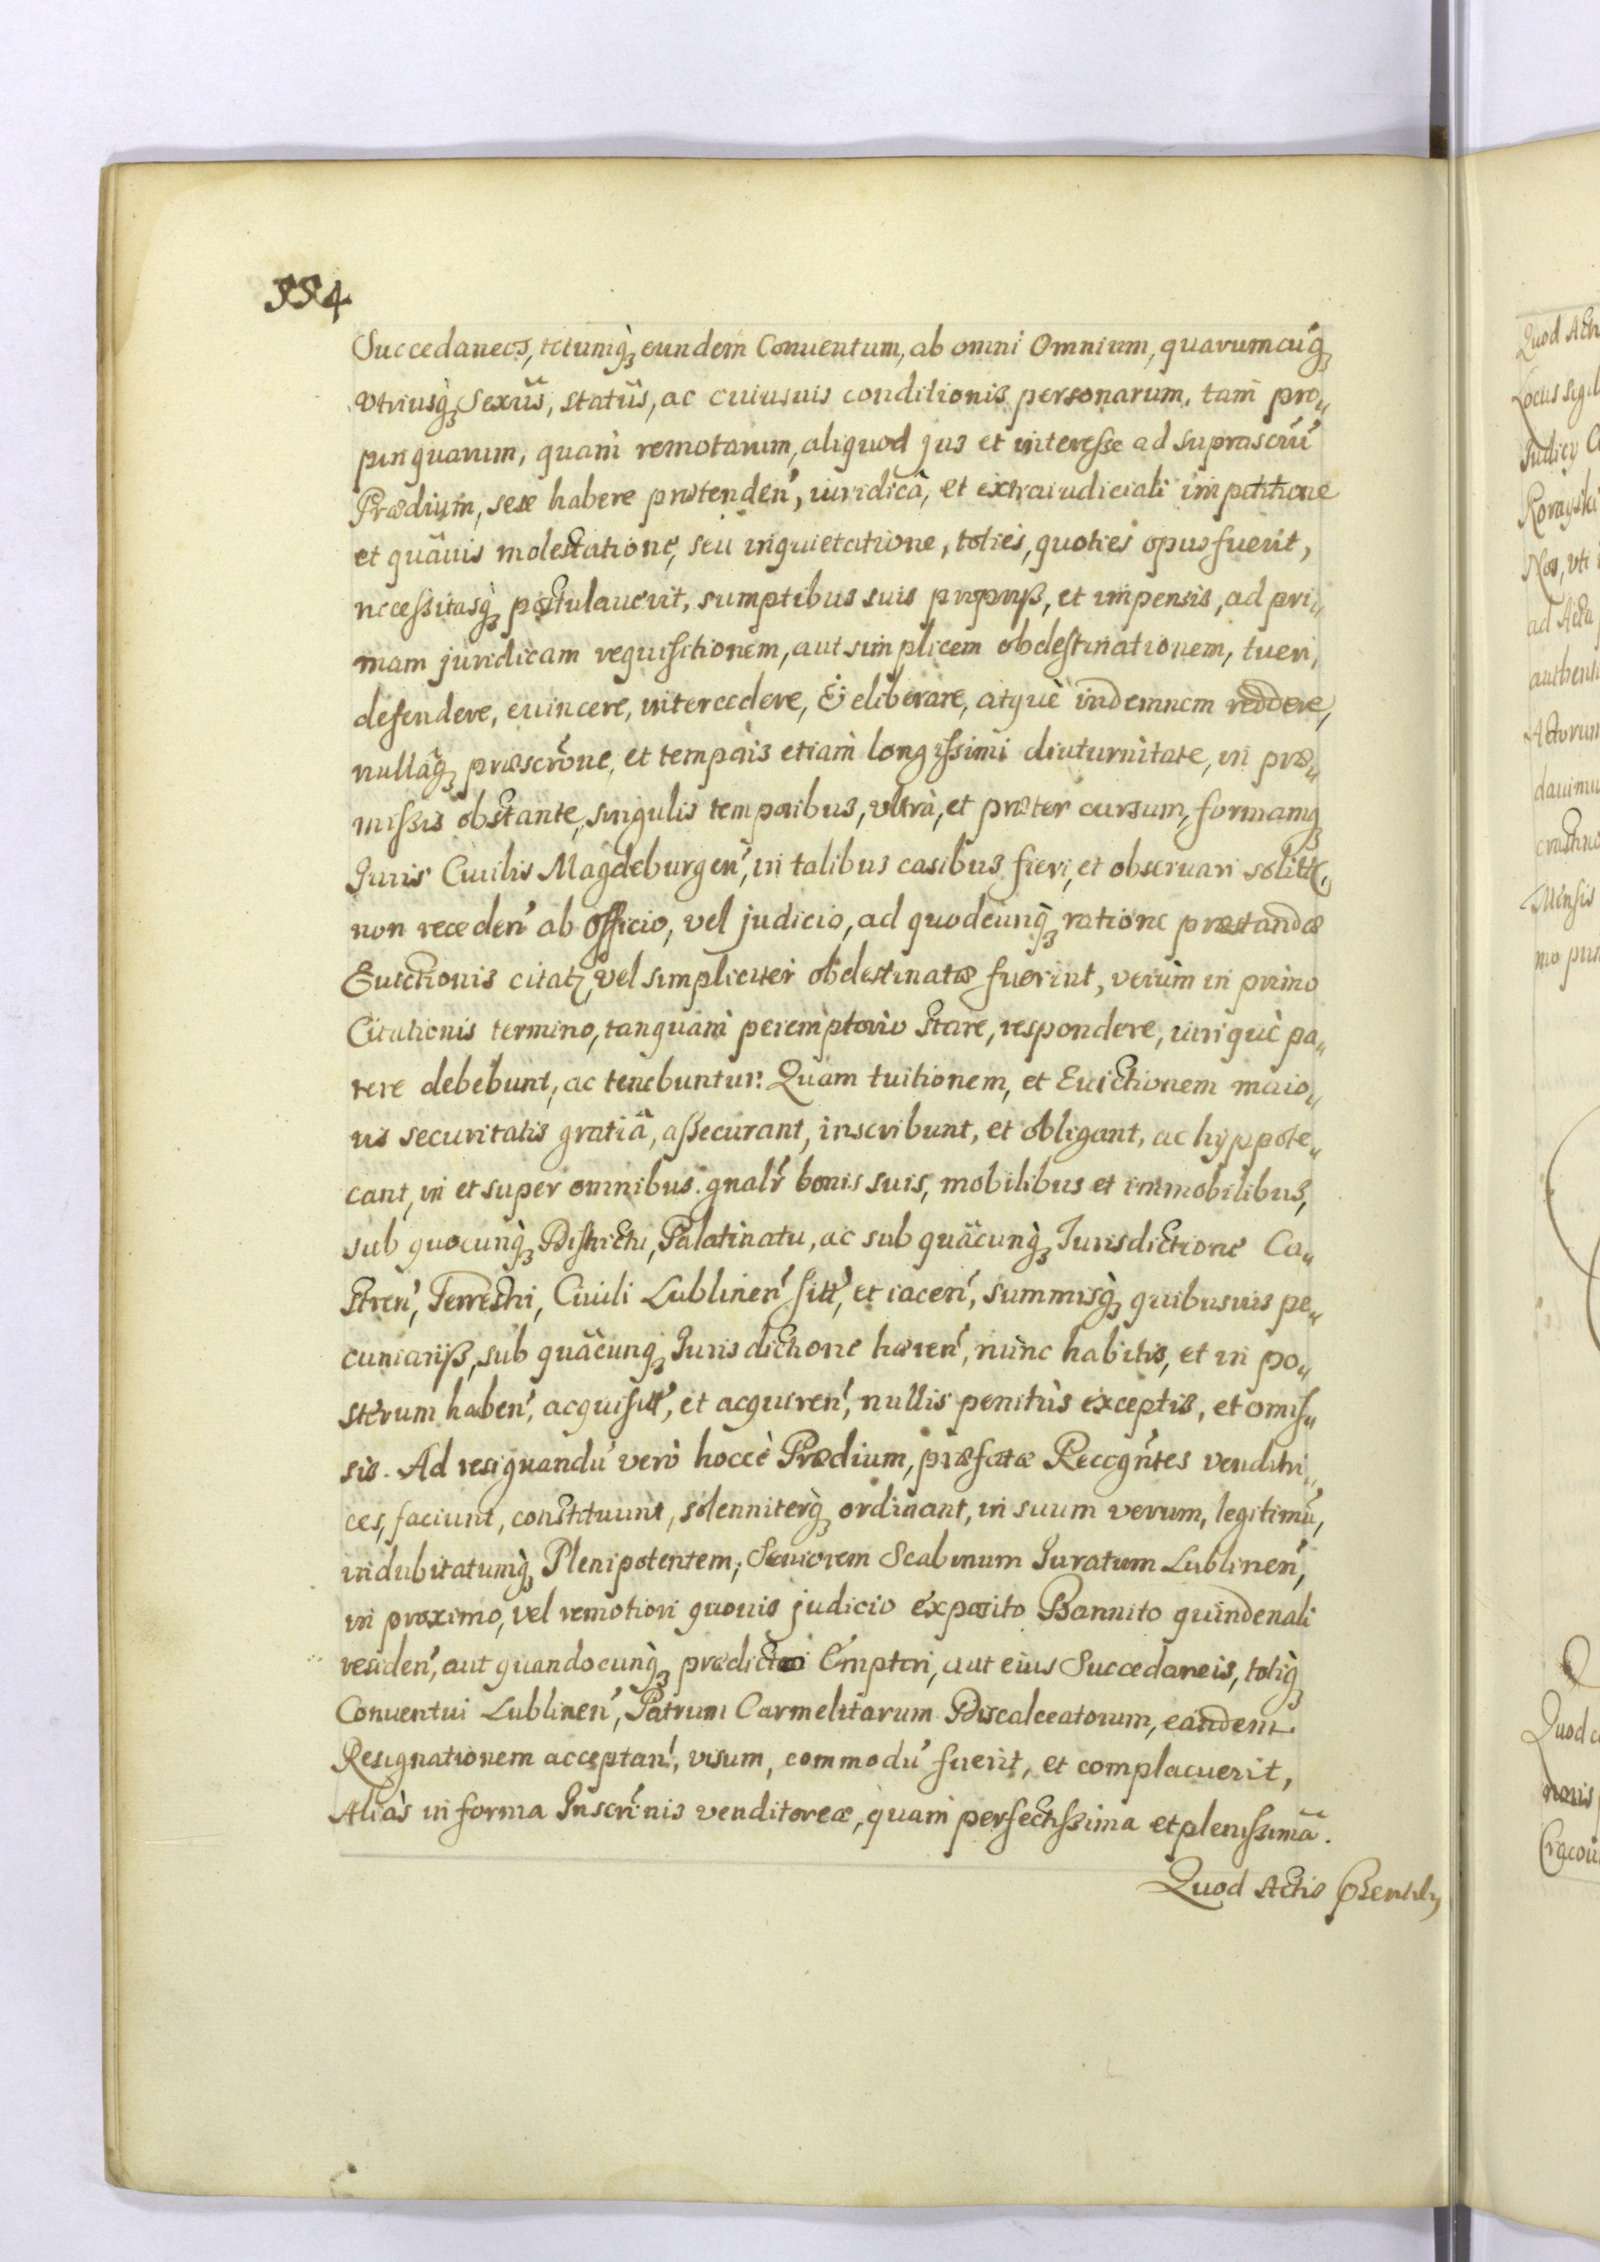 554
Succedaneos, totumq́ꝫ eundem Conuentum, ab omni Omnium, quarumcúqꝫ
vtriusq́ꝫ Sexûs, statûs, ac cuiusuis conditionis personarum, tam pro„
pinquarum, quam̀ remotarum, aliquod jus et interesse ad suprascrit́
Prædium, sese habere prætendeń, iuridicâ, et extraiudiciali impetitione
et quâuis molestatione, seu inquietatione, toties, quoties opus fuerit,
necessitasq́ꝫ postulauerit, sumptibus suis proprijß, et impensis, ad pri„
mam juridicam requisitionem, aut simplicem obdestinationem, tueri,
defendere, euincere, intercedere, & eliberare, atquè indemnem reddere,
nullâqꝫ præscrõne, et temporis etiam̀ longissimi diuturnitate, in præ„
missis obstante, singulis temporibus, vltrà, et præter cursum, formamqꝫ
Juris Ciuilis Magdeburgeń, in talibus casibus fieri, et obseruari solitt,
non recedeń ab officio, vel judicio, ad quodcunq́ꝫ ratione præstandæ
Euictionis citatæ, vel simpliciter obdestinatæ fuerint, verùm in primo
Citationis termino, tanquam̀ peremptorio stare, respondere, iuriquè pa„
rere debebunt, ac tenebuntur. Quam tuitionem, et Euictionem maio„
ris securitatis gratiâ, assecurant, inscribunt, et obligant, ac hyppote„
cant, in et super omnibus gnalr̃ bonis suis, mobilibus et immobilibus,
sub quocunq́ꝫ Districtu, Palatinatu, ac sub quâcunq́ꝫ Jurisdictione Ca„
streń, Terrestri, Ciuili Lublineń sitt́, et iaceń, summisq́ꝫ quibusuis pe„
cuniarijß, sub quâcunqꝫ Jurisdictione hæreń, nùnc habitis, et in po„
sterum habeń, acquisitt́, et acquireń, nullis penitùs exceptis, et omis„
sis. Ad resignandú verò hoccè Prædium, præfatæ Recogñtes venditri„
ces, faciunt, constituunt, solenniterq́ꝫ ordinant, in suum verum, legitimú,
indubitatumq́ꝫ Plenipotentem; Seniorem Scabinum Juratum Lublineń,
in proximo, vel remotiori quouis judicio exposito Bannito quindenali
resideń, aut quandocunq́ꝫ prædicto Emptori, aut eius Succedaneis, totiq́ꝫ
Conuentui Lublineń, Patrum Carmelitarum Discalceatorum, eandem
Resignationem acceptań, visum, commodú fuerit, et complacuerit,
Aliàs in forma Inscrñnis venditoreæ, quam̀ perfectissima et plenissimâ.
Quod Actis